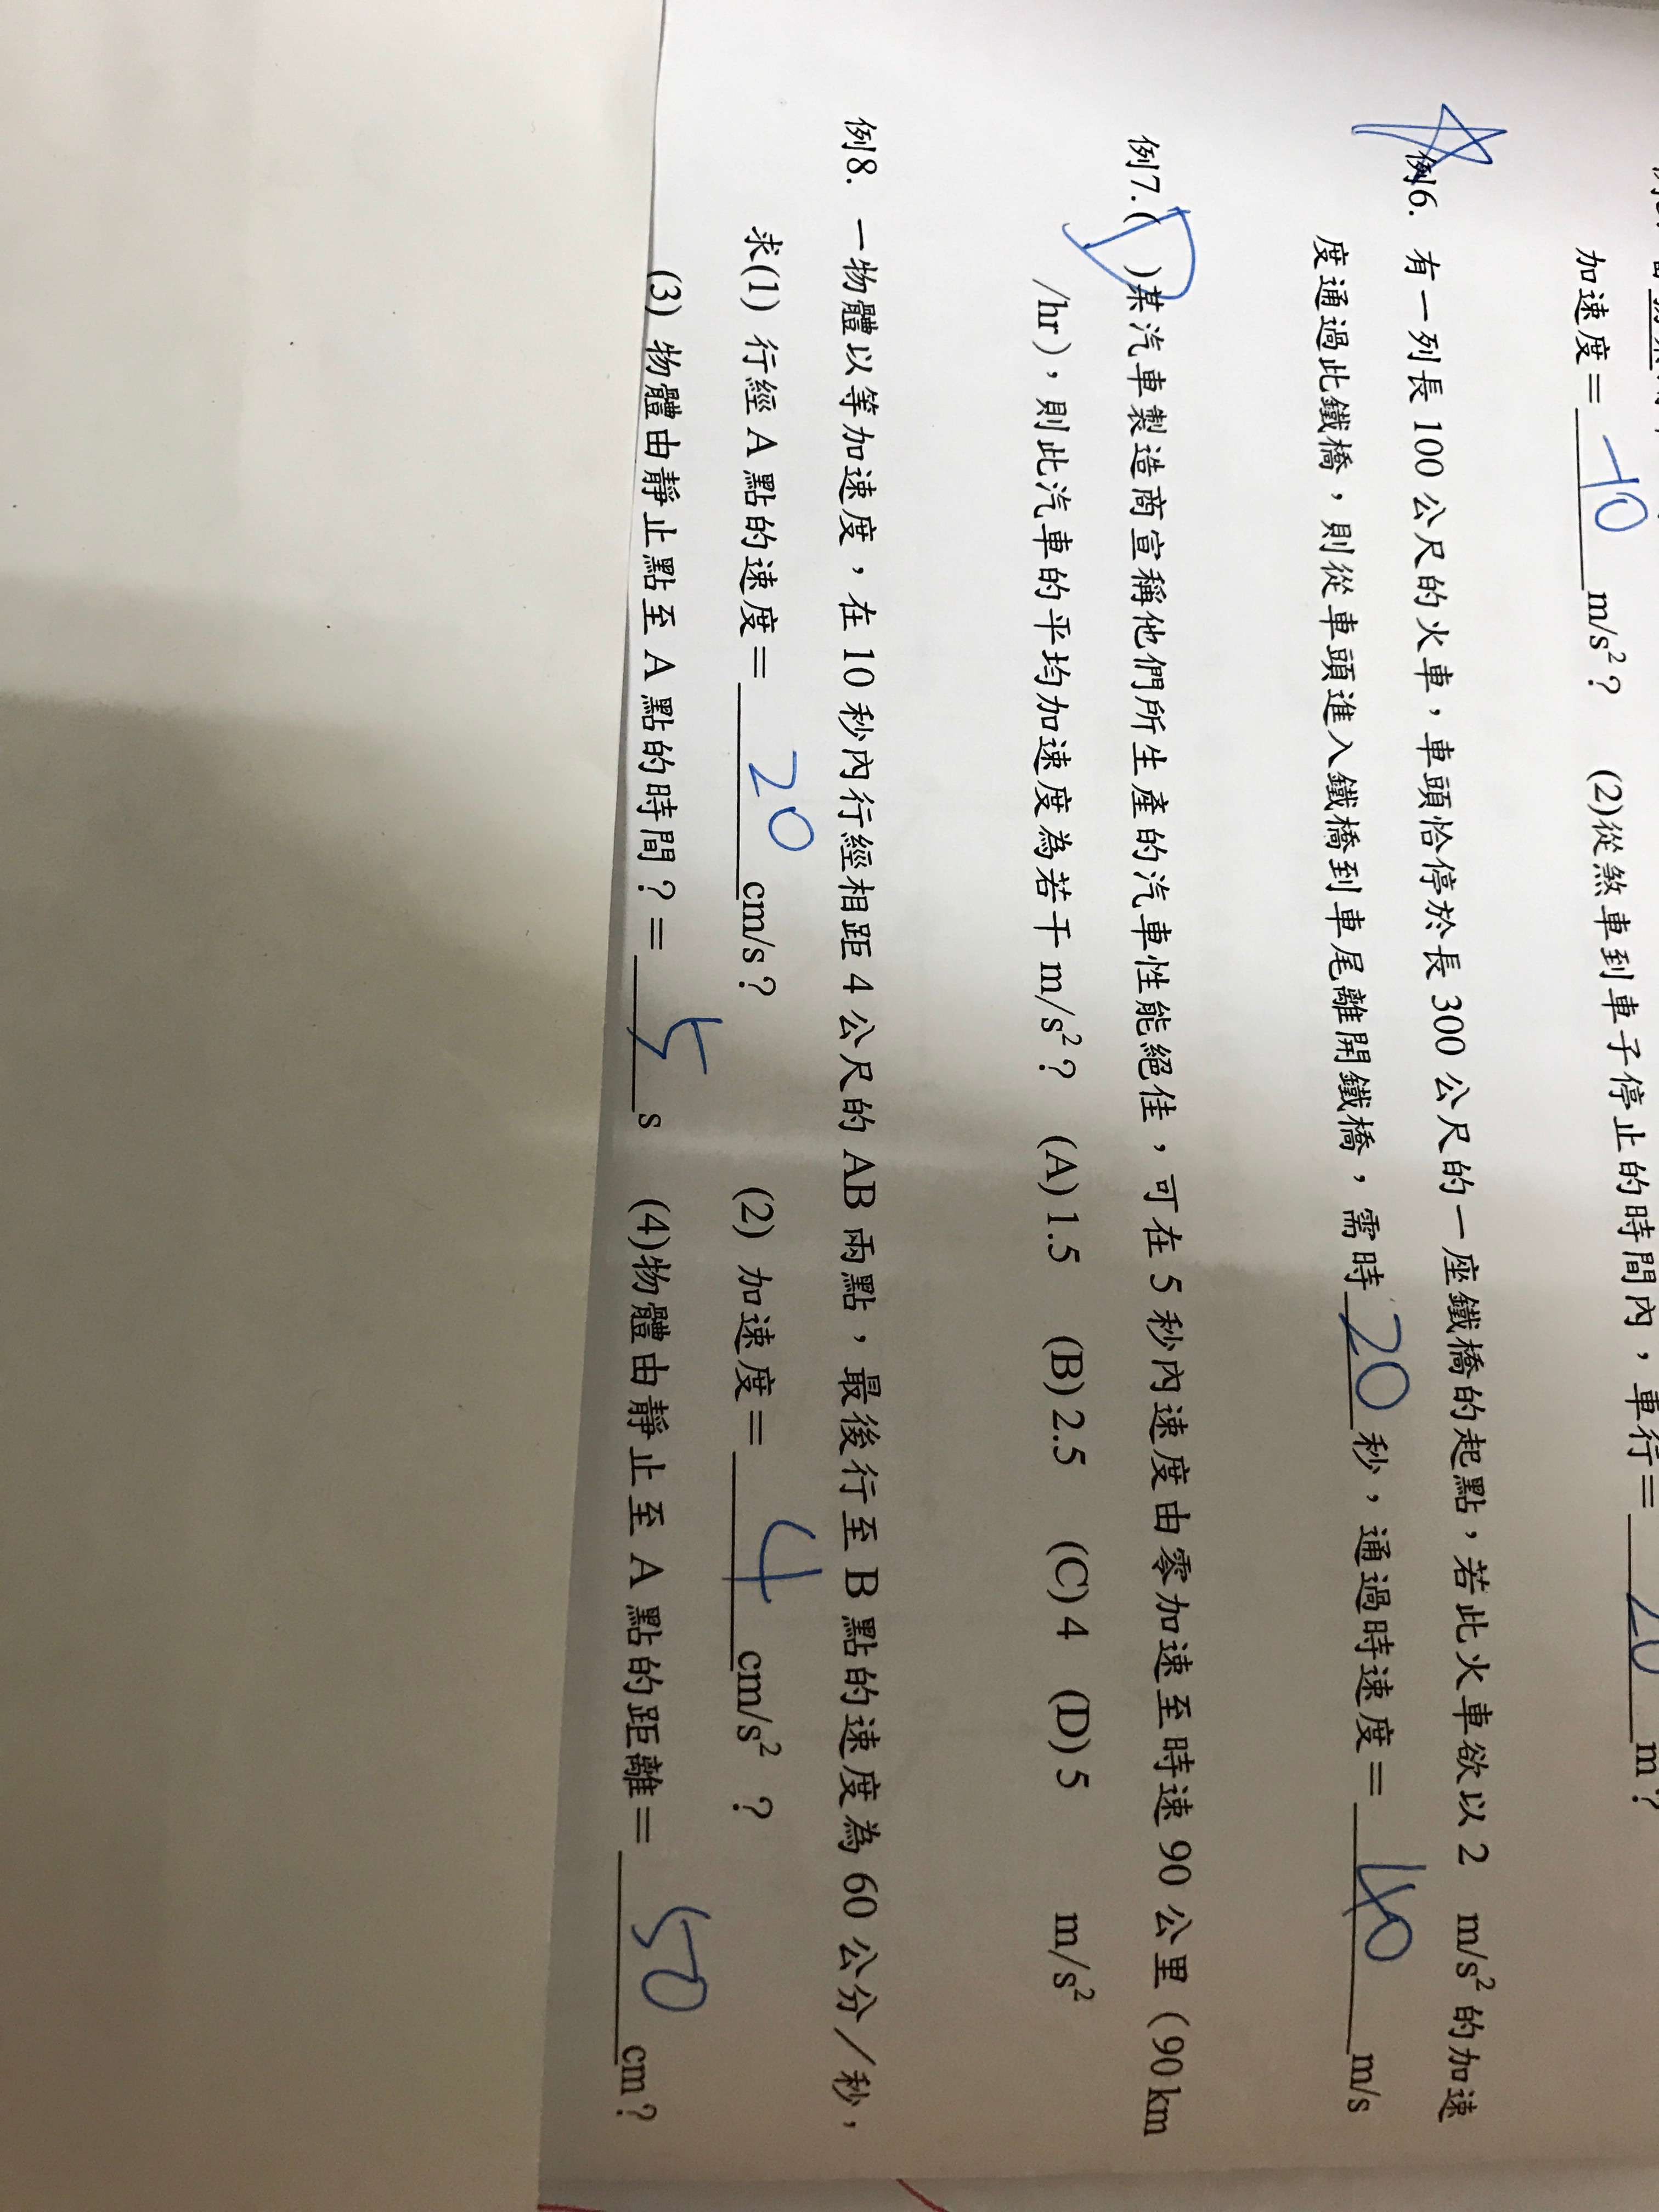 加速度＝ -10 m/s²？ (2)從煞車到車子停止的時間內，車行＝ 20 m？
例6. 有一列長 100 公尺的火車，車頭恰停於長 300 公尺的一座鐵橋的起點，若此火車欲以 2 m/s² 的加速
度通過此鐵橋，則從車頭進入鐵橋到車尾離開鐵橋，需時 20 秒，通過時速度＝ 40 m/s
例7.( D )某汽車製造商宣稱他們所生產的汽車性能絕佳，可在 5 秒內速度由零加速至時速 90 公里（90 km
/hr），則此汽車的平均加速度為若干 m/s²？ (A) 1.5 (B) 2.5 (C) 4 (D) 5 m/s²
例8. 一物體以等加速度，在 10 秒內行經相距 4 公尺的 AB 兩點，最後行至 B 點的速度為 60 公分／秒，
求(1) 行經 A 點的速度＝ 20 cm/s？ (2) 加速度＝ 4 cm/s² ？
(3) 物體由靜止點至 A 點的時間？＝ 5 s (4)物體由靜止至 A 點的距離＝ 50 cm？